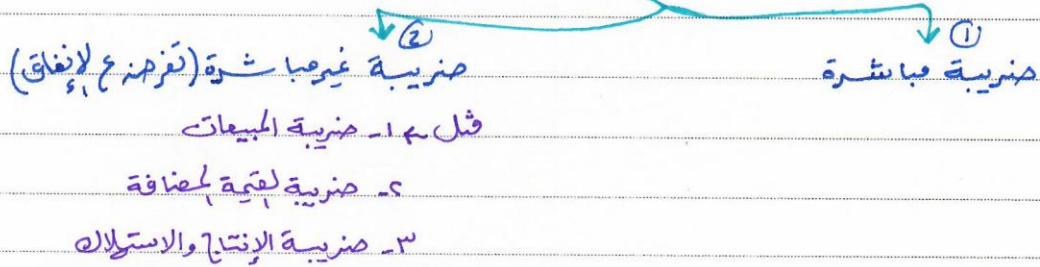 ① ②
ضريبة مباشرة ضريبة غير مباشرة (تفرض ع الإنفاق)
مثل ← ١- ضريبة المبيعات
٢- ضريبة القيمة المضافة
٣- ضريبة الإنتاج والاستهلاك